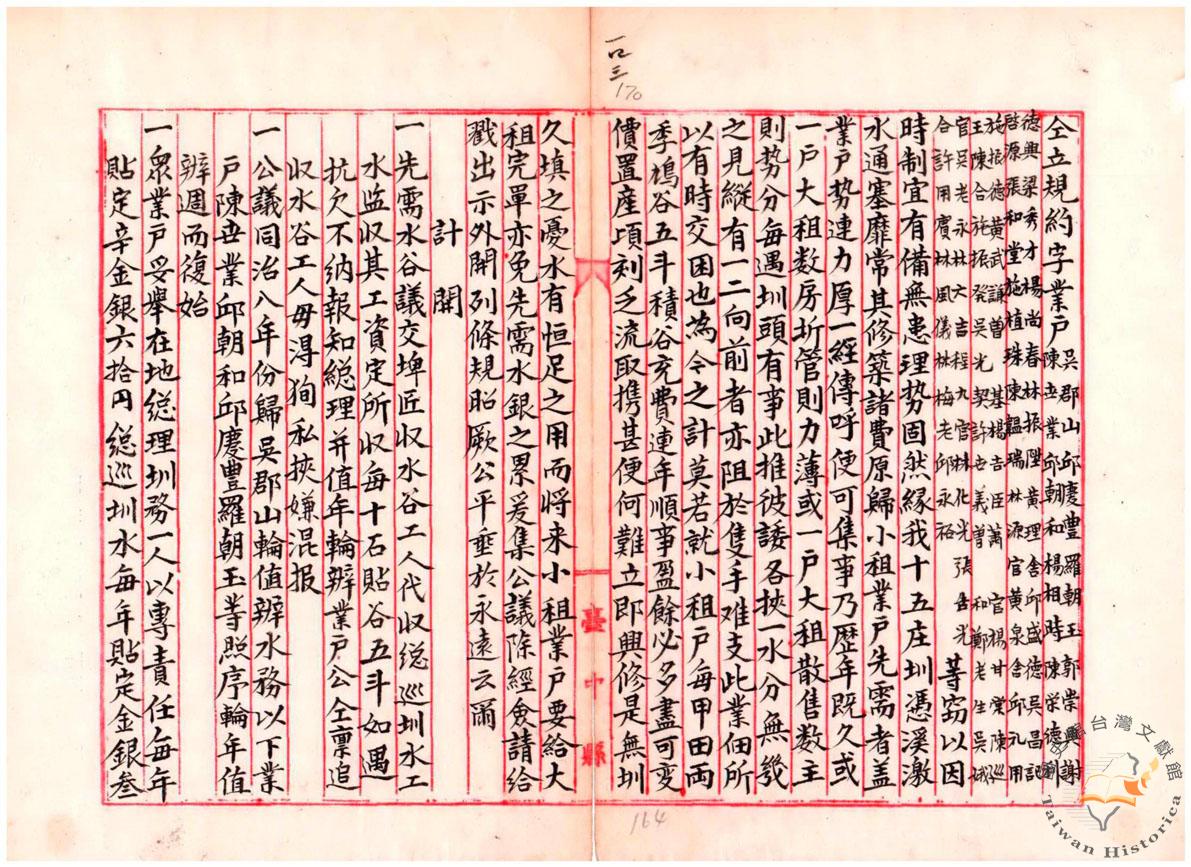 一口三
170
仝立規約字業戶
吳郡山邱慶豊羅朝玉郭崇興謝
陳立業邱朝和楊相時陳榮德
德興梁秀才楊尚春林振陞黃理舍邱盛德吳昌記
啓源張和堂施植珠陳韞瑞林源官黃泉舍邱礼用
施振德黃武謙曾基楊吉臣蕭官楊甘棠陳巡
王陳合施振發吳光契許世義曾和鄭老生吳城
官吳老永林大吉程九官林化光張吉光
合許用賓林風儀林梅老邱永裕
等窃以因
時制宜有備無患理势固然緣我十五庄圳憑溪激
水通塞靡常其修築諸費原歸小租業戶先需者盖
業戶势連力厚一經傳呼便可集事乃歷年既久或
一戶大租数房圻管則力薄或一戶大租散售数主
則势分每遇圳頭有事此推彼諉各挾一水分無幾
之見縱有一二向前者亦阻於隻手难支此業佃所
以有時交困也為今之計莫若就小租戶每甲田両
季鳩谷五斗積谷充費連年順事盈餘必多盡可变
價置産項刻之流取携甚便何難立即興修是無圳
久填之憂水有恒足之用而將来小租業戶要給大
租完單亦免先需水銀之累爰集公議除經僉請給
戳出示外開列條規昭厥公平垂於永遠云爾
計開
一先需水谷議交埤匠收水谷工人代收総巡圳水工
水监収其工資定所収每十石貼谷五斗如遇
抗欠不納報知総理并值年輪辦業戶公仝禀追
収水谷工人毋得狥私挾嫌混报
一公議同治八年份歸吳郡山輪值辦水務以下業
戶陳世業邱朝和邱慶豊羅朝玉等照序輪年值
辦週而復始
一衆業戶妥舉在地総理圳務一人以專責任每年
貼定辛金銀六拾円総巡圳水每年貼定金銀叁
臺中縣
164
台灣文獻館
Taiwan Historica